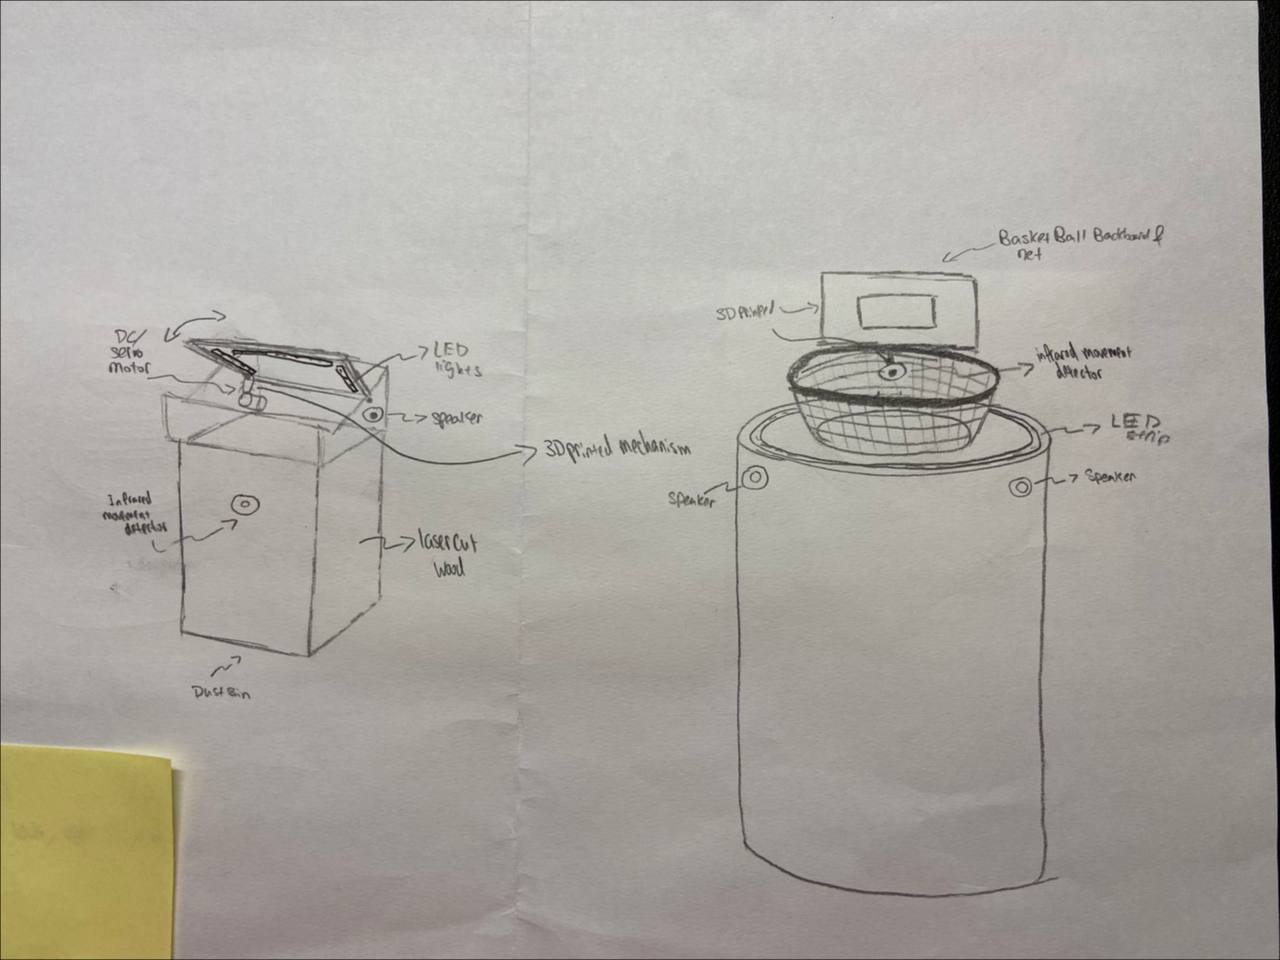 DC/
servo
motor
LED
lights
speaker
3D printed mechanism
Infrared
movement
detector
laser cut
wood
Dustbin
BasketBall Backboard &
net
3D printed
infrared movement
detector
LED
strip
Speaker
Speaker